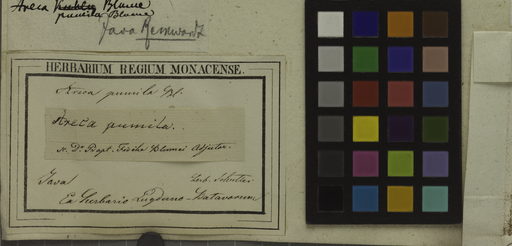 Areca Blume
pumila Blume
Java Reinwardt
HERBARIUM REGIUM MONACENSE.
Areca pumila Bl.
Areca pumila.
Java
Ex Herbario Lugduno-Batavorum